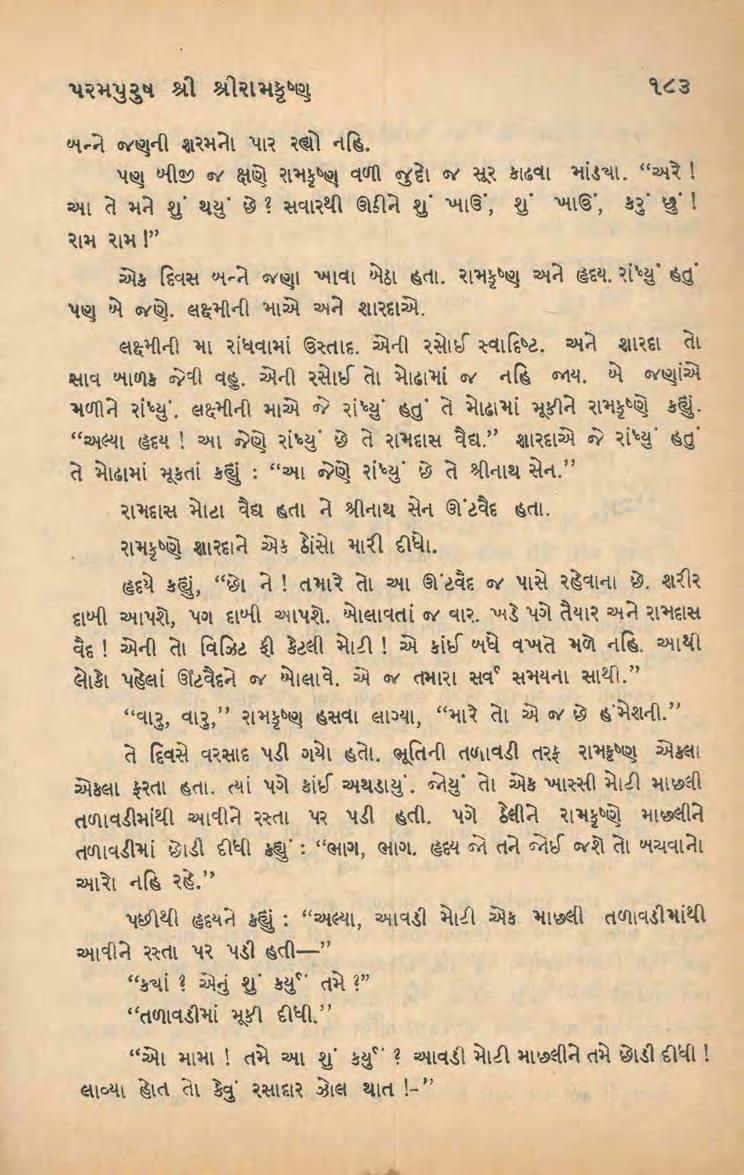 પરમપુરુષ શ્રી શ્રીરામકૃષ્ણ ૧૮૩
બન્ને જણની શરમનો પાર રહ્યો નહિ.
પણ બીજી જ ક્ષણે રામકૃષ્ણ વળી જુદો જ સૂર કાઢવા માંડયા. “અરે !
આ તે મને શું થયું છે ? સવારથી ઊઠીને શું ખાઉં, શું ખાઉં, કરું છું !
રામ રામ !”
એક દિવસ બન્ને જણા ખાવા બેઠા હતા. રામકૃષ્ણ અને હૃદય. રાંધ્યું હતું
પણ બે જણે. લક્ષ્મીની માએ અને શારદાએ.
લક્ષ્મીની મા રાંધવામાં ઉસ્તાદ. એની રસોઈ સ્વાદિષ્ટ. અને શારદા તો
સાવ બાળક જેવી વહુ. એની રસોઈ તો મોઢામાં જ નહિ જાય. બે જણાંએ
મળીને રાંધ્યું. લક્ષ્મીની માએ જે રાંધ્યું હતું તે મોઢામાં મૂકીને રામકૃષ્ણે કહ્યું.
“અલ્યા હૃદય ! આ જેણે રાંધ્યું છે તે રામદાસ વૈદ્ય.” શારદાએ જે રાંધ્યું હતું
તે મોઢામાં મૂકતાં કહ્યું : “આ જેણે રાંધ્યું છે તે શ્રીનાથ સેન.”
રામદાસ મોટા વૈદ્ય હતા ને શ્રીનાથ સેન ઊંટવૈદ હતા.
રામકૃષ્ણે શારદાને એક ઠોંસો મારી દીધો.
હૃદયે કહ્યું, “છો ને ! તમારે તો આ ઊંટવૈદ જ પાસે રહેવાના છે. શરીર
દાબી આપશે, પગ દાબી આપશે. બોલાવતાં જ વાર. ખડે પગે તૈયાર અને રામદાસ
વૈદ ! એની તો વિઝિટ ફી કેટલી મોટી ! એ કાંઈ બધે વખતે મળે નહિ. આથી
લોકો પહેલાં ઊંટવૈદને જ બોલાવે. એ જ તમારા સર્વ સમયના સાથી.”
“વારુ, વારુ,” રામકૃષ્ણ હસવા લાગ્યા, “મારે તો એ જ છે હંમેશની.”
તે દિવસે વરસાદ પડી ગયો હતો. ભૂતિની તળાવડી તરફ રામકૃષ્ણ એકલા
એકલા ફરતા હતા. ત્યાં પગે કાંઈ અથડાયું. જોયું તો એક ખાસ્સી મોટી માછલી
તળાવડીમાંથી આવીને રસ્તા પર પડી હતી. પગે ઠેલીને રામકૃષ્ણે માછલીને
તળાવડીમાં છોડી દીધી કહ્યું : “ભાગ, ભાગ. હૃદય જો તને જોઈ જશે તો બચવાનો
આરો નહિ રહે.”
પછીથી હૃદયને કહ્યું : “અલ્યા, આવડી મોટી એક માછલી તળાવડીમાંથી
આવીને રસ્તા પર પડી હતી—”
“કયાં ? એનું શું કર્યું તમે ?”
“તળાવડીમાં મૂકી દીધી.”
“ઓ મામા ! તમે આ શું કર્યું ? આવડી મોટી માછલીને તમે છોડી દીધી !
લાવ્યા હોત તો કેવું રસાદાર ઝોલ થાત !-”